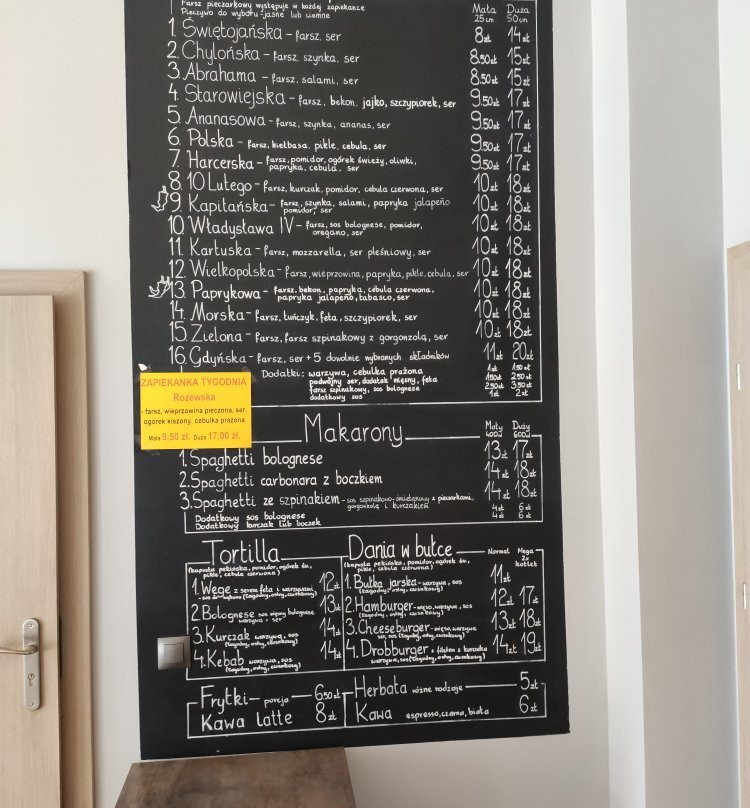 Farsz pieczarkowy występuje w każdej zapiekance
Pieczywo do wyboru - jasne lub ciemne
Mała 25cm Duża 50cm
1. Świętojańska - farsz, ser 8zł 14zł
2. Chylońska - farsz, szynka, ser 8.50zł 15zł
3. Abrahama - farsz, salami, ser 8.50zł 15zł
4. Starowiejska - farsz, bekon, jajko, szczypiorek, ser 9.50zł 17zł
5. Ananasowa - farsz, szynka, ananas, ser 9.50zł 17zł
6. Polska - farsz, kiełbasa, pikle, cebula, ser 9.50zł 17zł
7. Harcerska - farsz, pomidor, ogórek świeży, oliwki,
papryka, cebula, ser 9.50zł 17zł
8. 10 Lutego - farsz, kurczak, pomidor, cebula czerwona, ser 10zł 18zł
9. Kapitańska - farsz, szynka, salami, papryka jalapeño
pomidor, ser 10zł 18zł
10. Władysława IV - farsz, sos bolognese, pomidor,
oregano, ser 10zł 18zł
11. Kartuska - farsz, mozzarella, ser pleśniowy, ser 10zł 18zł
12. Wielkopolska - farsz, wieprzowina, papryka, pikle, cebula, ser 10zł 18zł
13. Paprykowa - farsz, bekon, papryka, cebula czerwona,
papryka jalapeño, tabasco, ser 10zł 18zł
14. Morska - farsz, tuńczyk, feta, szczypiorek, ser 10zł 18zł
15. Zielona - farsz, farsz szpinakowy z gorgonzolą, ser 10zł 18zł
16. Gdyńska - farsz, ser + 5 dowolnie wybranych składników 11zł 20zł
Dodatki: warzywa, cebulka prażona 1zł 1.50zł
podwójny ser, dodatek mięsny, feta 1.50zł 2.50zł
farsz szpinakowy, sos bolognese 2.50zł 3.50zł
dodatkowy sos 1zł 2zł
ZAPIEKANKA TYGODNIA
Rozewska
- farsz, wieprzowina pieczona, ser,
ogórek kiszony, cebulka prażona
Mała 9,50 zł. Duża 17,00 zł.
Makarony
Mały 400g Duży 600g
1. Spaghetti bolognese 13zł 17zł
2. Spaghetti carbonara z boczkiem 14zł 18zł
3. Spaghetti ze szpinakiem - sos szpinakowo-śmietanowy z pieczarkami,
gorgonzolą i kurczakiem 14zł 18zł
Dodatkowy sos bolognese 4zł 6zł
Dodatkowy kurczak lub boczek 4zł 6zł
Tortilla
(kapusta pekińska, pomidor, ogórek św,
pikle, cebula czerwona)
1. Wege z serem feta i warzywami
12zł
2. Bolognese sos mięsny bolognese
warzywa + ser 13zł
3. Kurczak warzywa, sos
(łagodny, ostry, czosnkowy) 14zł
4. Kebab warzywa, sos
(łagodny, ostry, czosnkowy) 14zł
Dania w bułce Normal Mega 2x kotlet
(kapusta pekińska, pomidor, ogórek św,
pikle, cebula czerwona)
1. Bułka jarska - warzywa, sos
(łagodny, ostry, czosnkowy) 11zł
2. Hamburger - mięso, warzywa, sos
(łagodny, ostry, czosnkowy) 12zł 17zł
3. Cheeseburger - mięso, warzywa
ser, sos (łagodny, ostry, czosnkowy) 13zł 18zł
4. Drobburger z filetem z kurczaka
warzywa, sos (łagodny, ostry, czosnkowy) 14zł 19zł
Frytki - porcja 6.50zł
Kawa latte 8zł
Herbata różne rodzaje 5zł
Kawa espresso, czarna, biała 6zł